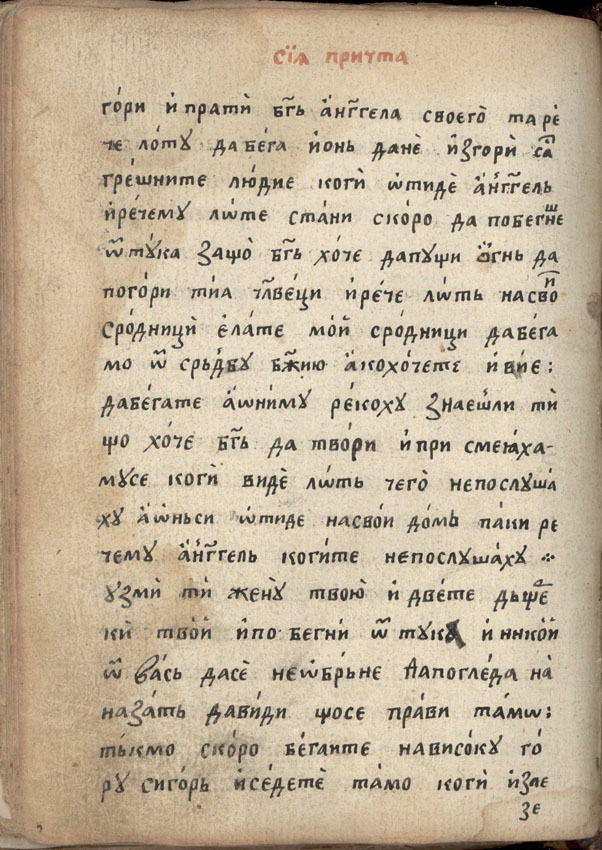 Сїѧ притта
го́ри и҆ прати̏ бг҃ь а҆́нгг҃ела своего̀ та рѐ
че ло́ту да бе́га и҆онь да не̏ и҆згори̏ са
гре́шните лю́дие коги̏ ѿтидѐ а҆́нгг҃ель
и҆рѐчему лѡ́те ста́ни ско́ро да побегнеш
ѿ ту́ка защо̀ бг҃ь хо́че дапущи ѻ҆́гнь да
пого́ри ти́а чл҃ве́ци и҆ре́че лѡ́ть на свои
сро́дници̏ е҆ла́те мо́й сро́дници да бе́га
мо ѿ срьдбу бж҃ию а҆кохо́чете и҆ ви́е :
дабе́гате а҆ѡни́му ре́коху зна́еш ли ти̏
що хо́че бг҃ь да тво́ри и҆ при смеꙗ́ха-
мусе коги̏ видѐ лѡ́ть чего̀ непослуша́
ху а҆ѡ́ньси ѿтиде на сво́й до́мь па́ки ре
чему а҆́нгг҃ель коги́те непослуша́ху ⁘
узми̏ ти̏ жену̀ твою̀ и҆ две́те дьще
ки̏ тво́й и҆по бегни̏ ѿ тука и҆ нико́й
ѿ ва́сь дасѐ неѡбрьне да погле́да на̀
наза́ть да ви́ди що се пра́ви та́мѡ :
ты́кмо ско́ро бе́гаите на висо́ку го́
ру сиго́рь и҆се́детѐ та́мо коги̏ и҆зле
зе